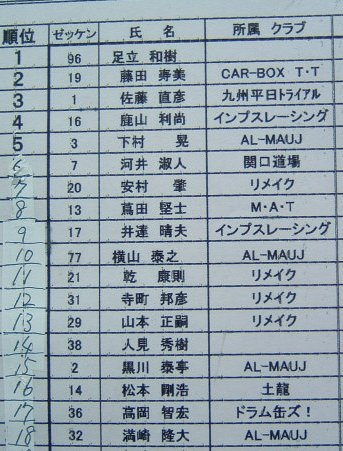 順位 ゼッケン 氏 名 所属 クラブ
1 96 足立 和樹
2 19 藤田 寿美 CAR-BOX T・T
3 1 佐藤 直彦 九州平日トライアル
4 16 鹿山 利尚 インプスレーシング
5 3 下村 晃 AL-MAUJ
6 7 河井 淑人 関口道場
7 20 安村 肇 リメイク
8 13 蔦田 堅士 M・A・T
9 17 井達 晴夫 インプスレーシング
10 77 横山 泰之 AL-MAUJ
11 21 乾 康則 リメイク
12 31 寺町 邦彦 リメイク
13 29 山本 正嗣 リメイク
14 38 人見 秀樹
15 2 黒川 泰亭 AL-MAUJ
16 14 松本 剛浩 土龍
17 36 高岡 智宏 ドラム缶ズ!
18 32 満崎 隆大 AL-MAUJ